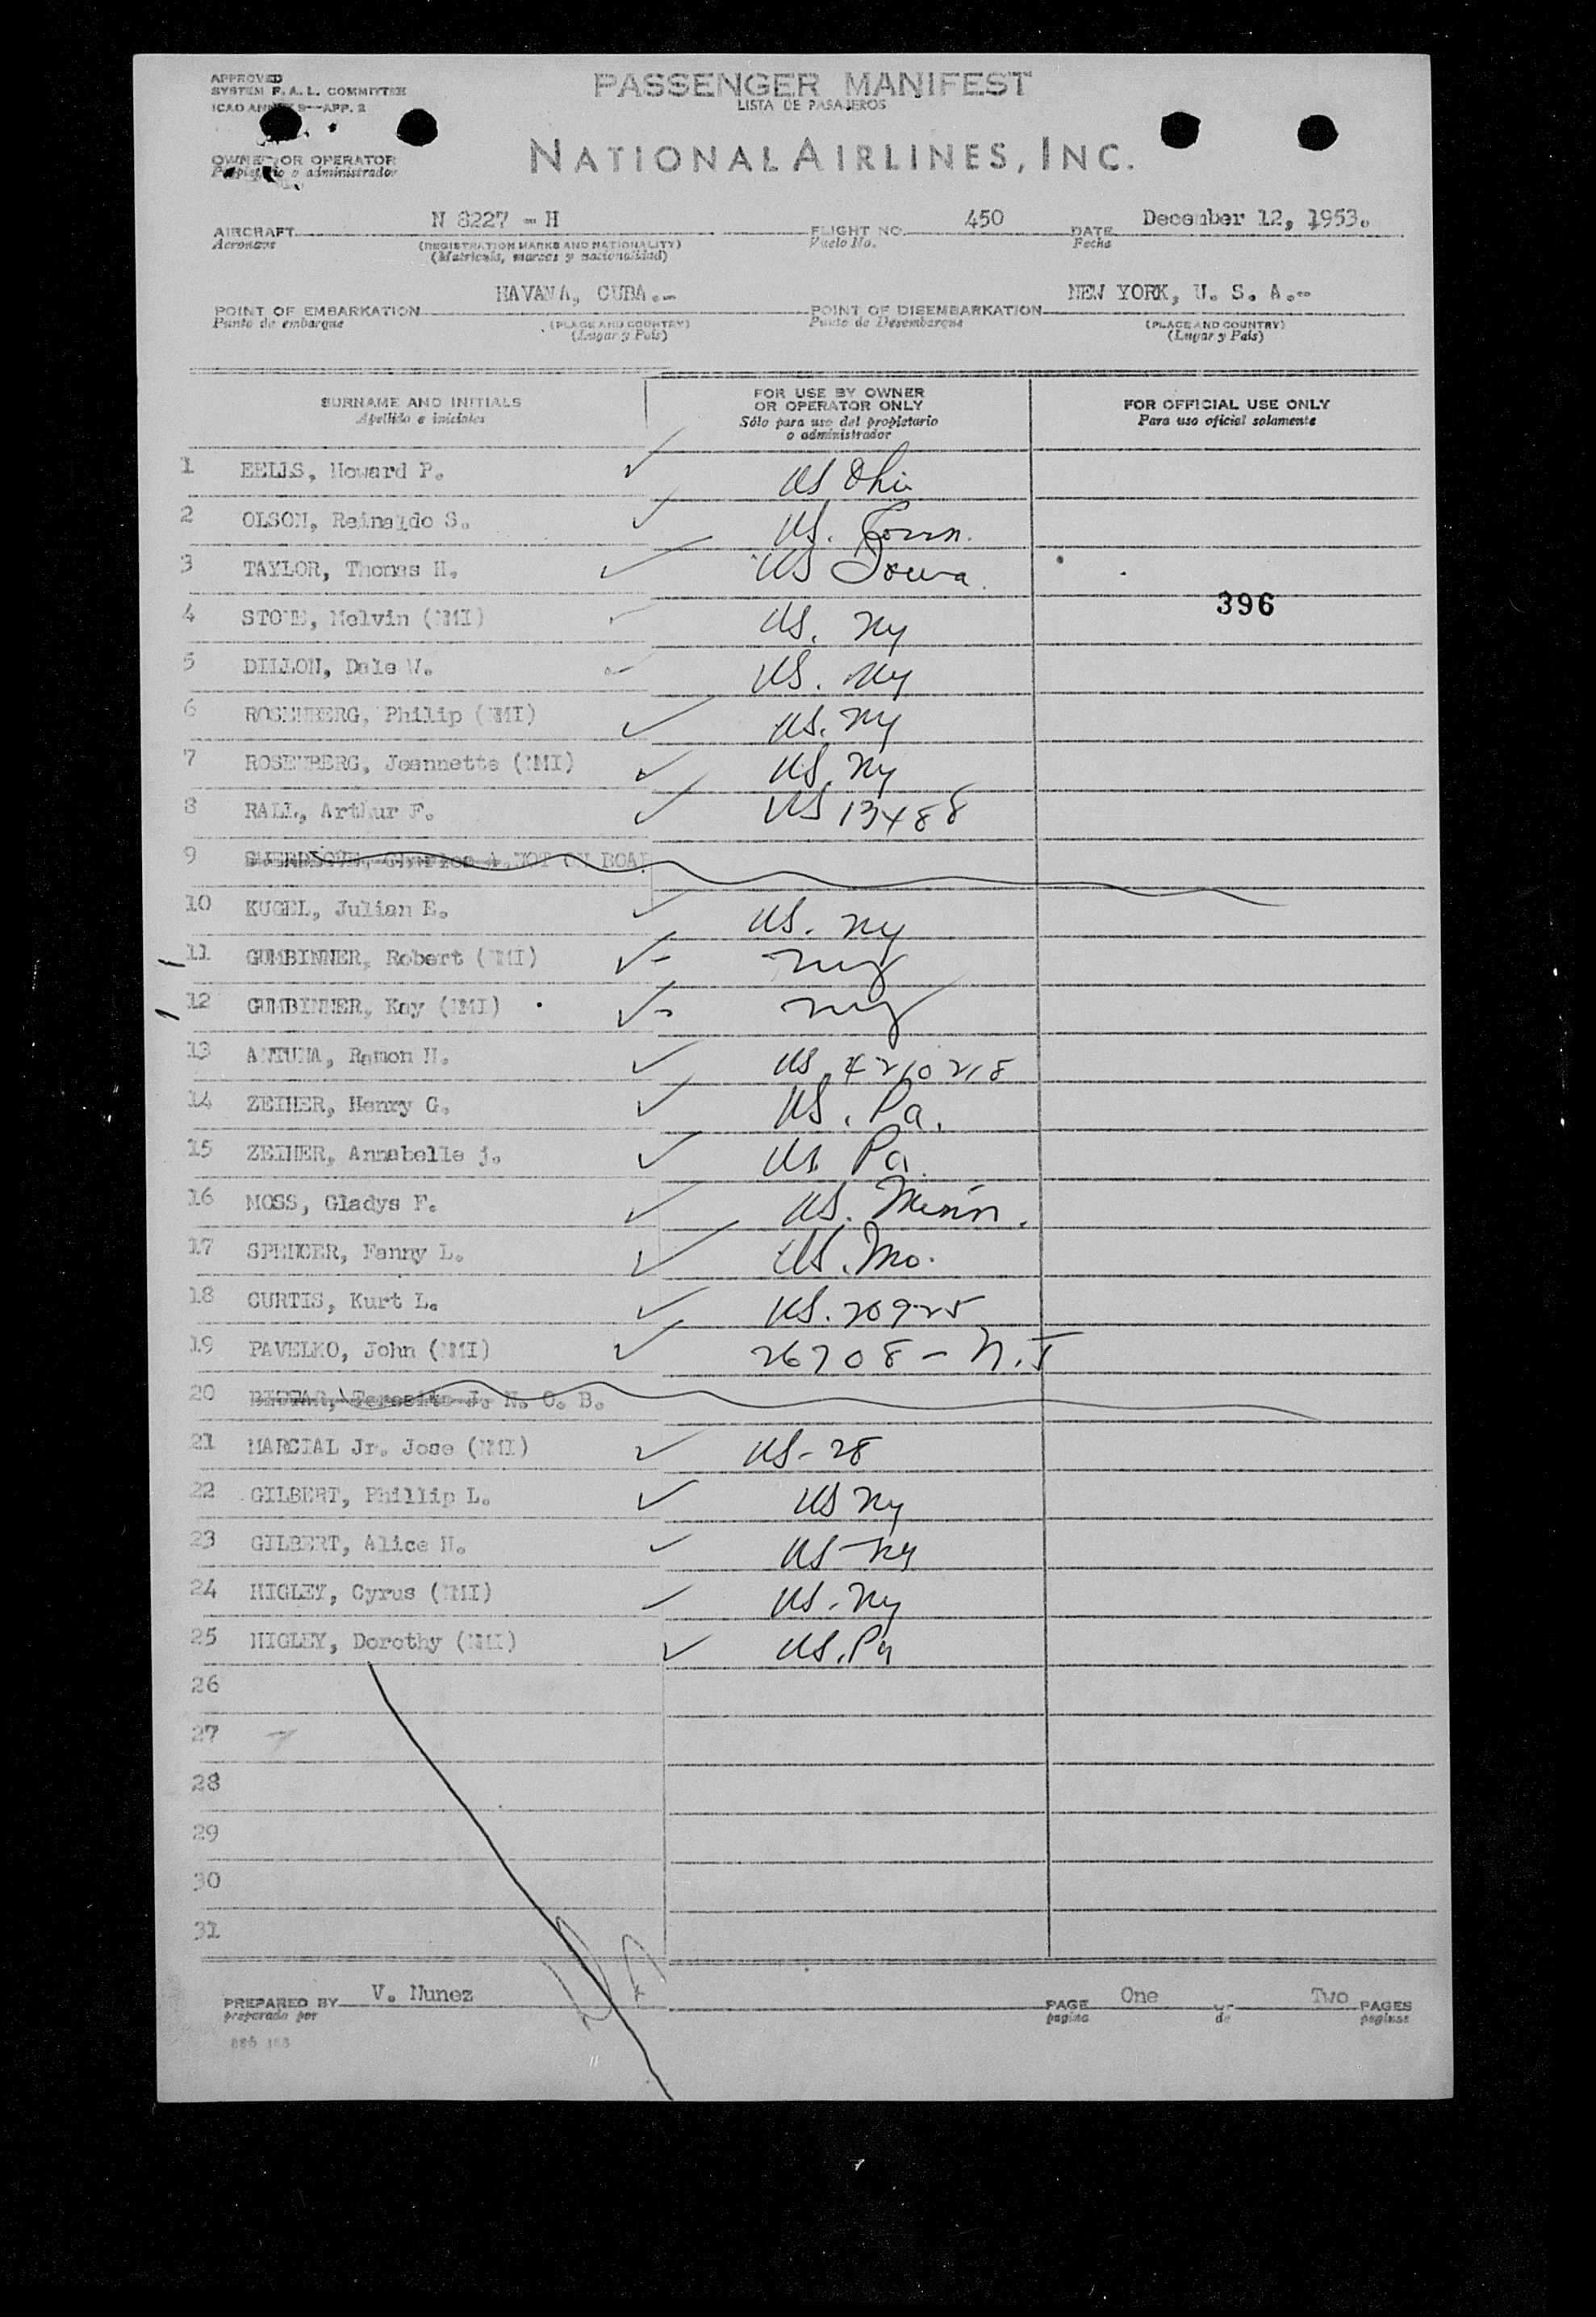 APPROVED
SYSTEM F. A. L. COMMITTEE
ICAO ANNEX 9—APP. 2
PASSENGER MANIFEST
LISTA DE PASAJEROS
OWNER OR OPERATOR
Propietario o administrador
NATIONAL AIRLINES, INC.
AIRCRAFT N 8227 - H FLIGHT NO. 450 DATE December 12, 1953.
Aeronave (REGISTRATION MARKS AND NATIONALITY) Vuelo No. Fecha
(Matricula, marcas y nacionalidad)
POINT OF EMBARKATION HAVANA, CUBA.- POINT OF DISEMBARKATION NEW YORK, U. S. A.-
Punto de embarque (PLACE AND COUNTRY) Punto de Desembarque (PLACE AND COUNTRY)
(Lugar y País) (Lugar y País)
SURNAME AND INITIALS
Apellido e iniciales
FOR USE BY OWNER
OR OPERATOR ONLY
Sólo para uso del propietario
o administrador
FOR OFFICIAL USE ONLY
Para uso oficial solamente
1 EELLS, Howard P. ✓ US Ohio
2 OLSON, Reinaldo S. ✓ US. Conn.
3 TAYLOR, Thomas H. ✓ US Iowa
396
4 STONE, Melvin (NMI) ✓ US. NY
5 DILLON, Dale W. US. NY
6 ROSENBERG, Philip (NMI) ✓ US. NY
7 ROSENBERG, Jeannette (NMI) ✓ US. NY
8 RALL, Arthur F. ✓ US 13488
9 Charles A. NOT ON BOAR
10 KUGEL, Julian E. ✓ US. NY
11 GUMBINNER, Robert (NMI) ✓- NY
12 GUMBINNER, Kay (NMI) ✓- NY
13 ANTUNA, Ramon H. ✓ US 4210218
14 ZEIHER, Henry G. ✓ US. Pa.
15 ZEIHER, Annabelle j. ✓ US Pa.
16 MOSS, Gladys F. ✓ US. Minn.
17 SPENCER, Fanny L. ✓ US. Mo.
18 CURTIS, Kurt L. ✓ US. 20925
19 PAVELKO, John (NMI) ✓ 26708 - N.J
20 J. N. O. B.
21 MARCIAL Jr. Jose (NMI) ✓ US - 28
22 GILBERT, Phillip L. ✓ US NY
23 GILBERT, Alice H. ✓ US - NY
24 HIGLEY, Cyrus (NMI) US - NY
25 HIGLEY, Dorothy (NMI) ✓ US. Pa
26
27
28
29
30
31
PREPARED BY V. Nunez PAGE One OF Two PAGES
preparado por pagina de paginas